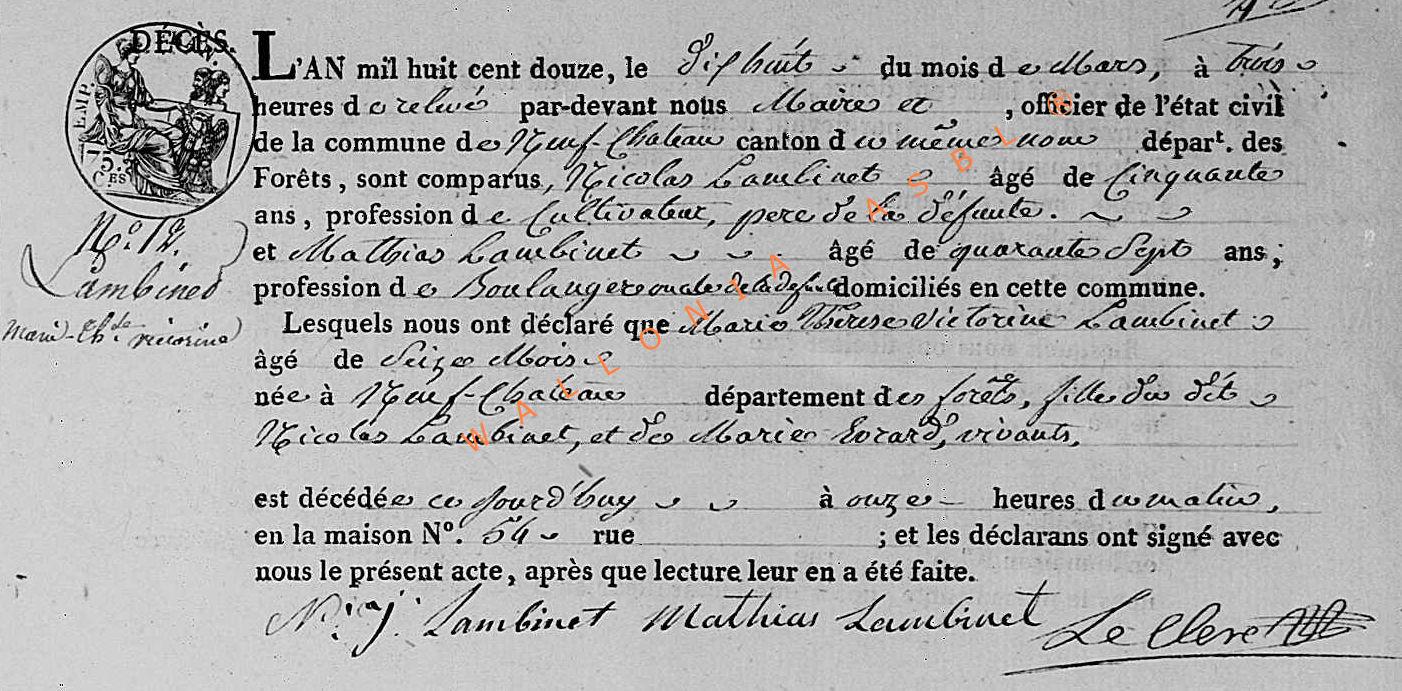 DÉCÈS.
EMP.
75.
CES
L'AN mil huit cent douze, le dix huit du mois de Mars, à trois
heures de relevé par-devant nous Maire et , officier de l'état civil
de la commune de Neuf-Chateau canton du même nom départ. des
Forêts, sont comparus, Nicolas Lambinet âgé de Cinquante
ans, profession de Cultivateur, pere de la défunte.
et Mathias Lambinet âgé de quarante Sept ans;
profession de Boulanger oncle de la defunte domiciliés en cette commune.
No. 12.
Lambinet
Marie-Thse victorine
Lesquels nous ont déclaré que Marie Thérese Victorine Lambinet
âgé de Seize Mois
née à Neuf-Chateau département des forêts, fille du dit
Nicolas Lambinet, et de Marie Evrard, vivants,
est décédée ce jourd'huy à onze heures du matin,
en la maison No. 54 rue ; et les déclarans ont signé avec
nous le présent acte, après que lecture leur en a été faite.
Lambinet Mathias Lambinet Le Clerc
WALLONIA ASBL ©